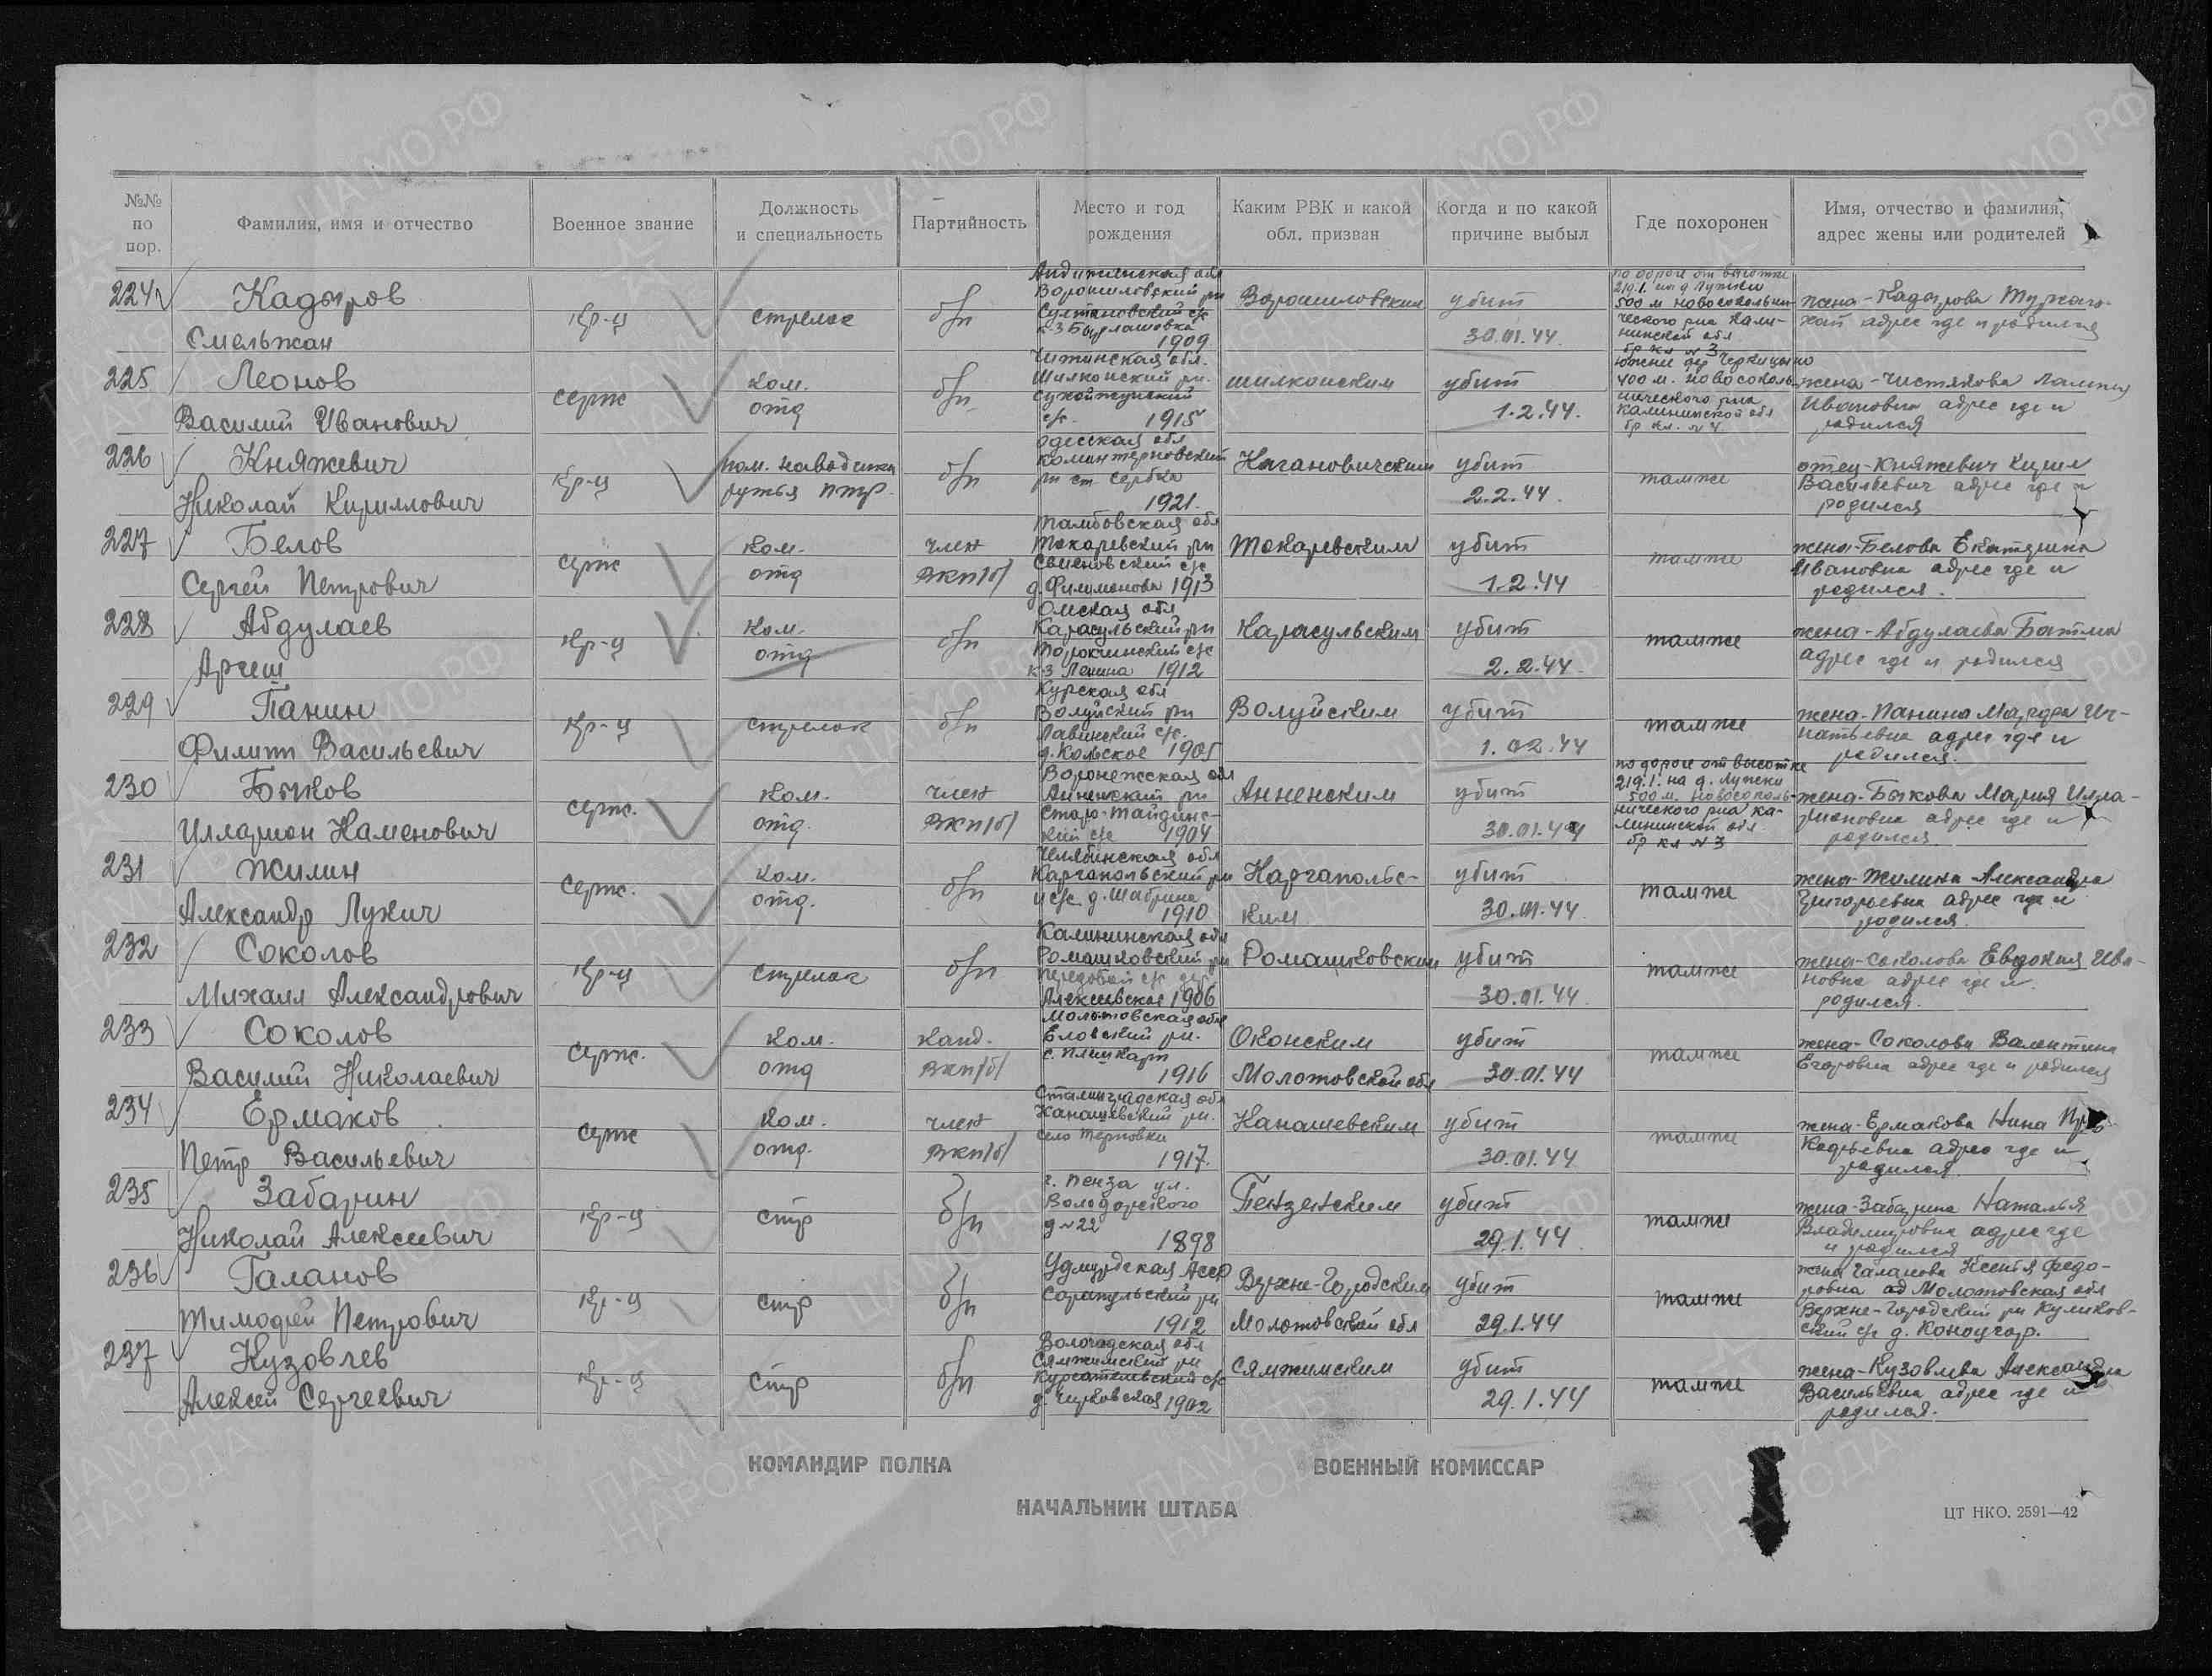 №№ по пор.
Фамилия, имя и отчество
Военное звание
Должность и специальность
Партийность
Место и год рождения
Каким РВК и какой обл. призван
Когда и по какой причине выбыл
Где похоронен
Имя, отчество и фамилия, адрес жены или родителей
224 Кадыров
Смельжан
кр-ц
стрелок
б/п
Андижанская обл
Ворошиловский рн
Султановский с/с
1909
Ворошиловским
убит
30.01.44.
по дороге от высотки
219.1. на д Лужки
500 м Новосокольни-
ческого р-на Кали-
нинской обл
бр кл N 3
жена - Кадырова
адрес где и родился
225 Леонов
Василий Иванович
сержт
ком.
отд
б/п
Читинская обл.
Шилкинский рн.
с/с. 1915
шилкинским
убит
1.2.44.
южнее дер Черницыно
400 м. Новосоколь-
нического р-на
Калининской обл
бр кл. N 4
жена - Чистякова
Ивановна адрес где и
родился
226 Княжевич
Николай Кириллович
кр-ц
пом. наводчика
ружья птр.
б/п
Одесская обл
рн ст. Сербка
1921.
Кагановическим
убит
2.2.44.
там же
отец - Княжевич Кирил
Васильевич адрес где и
родился
227 Белов
Сергей Петрович
сержт
ком.
отд
член
ВКП/б/
Тамбовская обл
Токаревский рн
д. Филимоново 1913
Токаревским
убит
1.2.44
там же
жена - Белова Екатерина
Ивановна адрес где и
родился.
228 Абдулаев
Аргеш
кр-ц
ком.
отд
б/п
Омская обл
Карасульский рн
к-з Ленина 1912
Карасульским
убит
2.2.44.
там же
жена - Абдулаева Батма
адрес где и родился
229 Панин
Филипп Васильевич
кр-ц
стрелок
б/п
Курская обл
Волуйский рн
Лавинский с/с.
д. Кольское 1905
Волуйским
убит
1.02.44
там же
жена - Панина Марфа Иг-
натьевна адрес где и
родился.
230 Быков
Илларион Каменович
сержт.
ком.
отд.
член
ВКП/б/
Воронежская обл
Анненский рн
Старо-Тайдинс-
кий с/с 1904
Анненским
убит
30.01.44
по дороге от высотки
219.1. на д. Лужки
500 м. Новосоколь-
нического р-на Ка-
лининской обл.
бр кл N 3
жена - Быкова Мария Илла-
рионовна адрес где и
родился.
231 Жилин
Александр Лукич
сержт.
ком.
отд.
б/п
Челябинская обл
Каргапольский рн
и с/с д. Шабрина
1910
Каргапольс-
ким
убит
30.01.44
там же
жена - Жилина Александра
Григорьевна адрес где и
родился.
232 Соколов
Михаил Александрович
кр-ц
стрелок
б/п
Калининская обл
Ромашковский рн
Алексеевское 1906
Ромашковским
убит
30.01.44.
там же
жена - Соколова Евдокия Ива-
новна адрес где и
родился.
233 Соколов
Василий Николаевич
сержт.
ком.
отд
канд.
ВКП/б/
Молотовская обл
Еловский рн.
1916
Оконским
Молотовской обл
убит
30.01.44
там же
жена - Соколова Валентина
Егоровна адрес где и родился
234 Ермаков
Петр Васильевич
сержт
ком.
отд.
член
ВКП/б/
Сталинградская обл
Канашевский рн.
село Терновки
1917.
Канашевским
убит
30.01.44
там же
жена - Ермакова Нина
адрес где и
родился
235 Забарин
Николай Алексеевич
кр-ц
стр
б/п
г. Пенза ул.
Володарского
д N 22
1898
Пензенским
убит
29.1.44.
там же
жена - Забарина Наталья
Владимировна адрес где
и родился
236 Галанов
Тимофей Петрович
кр-ц
стр
б/п
Удмуртская Асср
Сарапульский рн
1912
Верхне-Городским
Молотовской обл
убит
29.1.44
там же
жена Галанова Ксения Федо-
ровна ад Молотовская обл
Верхне-Городский рн Куликов-
ский с/с д.
237 Кузовлев
Алексей Сергеевич
кр-ц
стр
б/п
Вологодская обл
Сямжинский рн
д. Чурковская 1902
Сямжинским
убит
29.1.44
там же
жена - Кузовлева Александра
Васильевна адрес где и
родился.
КОМАНДИР ПОЛКА
ВОЕННЫЙ КОМИССАР
НАЧАЛЬНИК ШТАБА
ЦТ НКО. 2591—42
ПАМЯТЬ НАРОДА
ЦА МО РФ